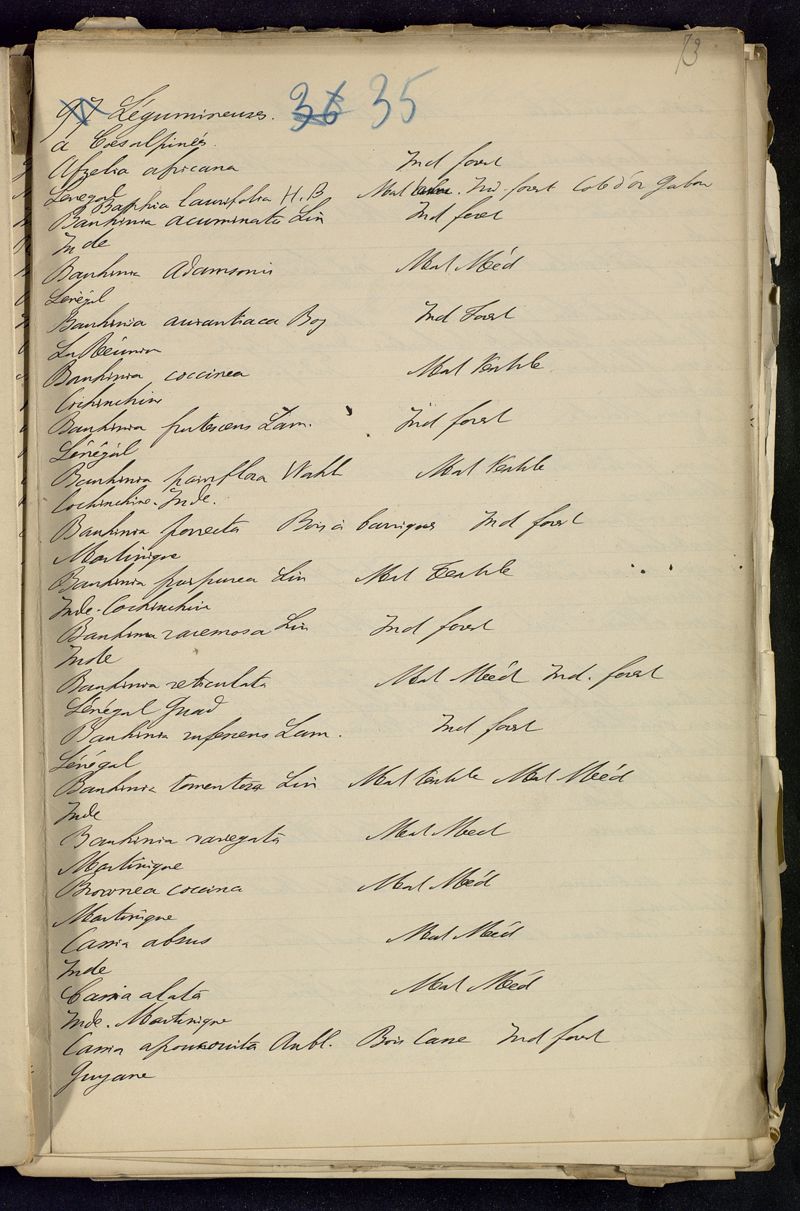 73
97 Légumineuses. 36 35
a Cæsalpinés
Afzelia africana Ind forest
Sénégal
Baphia laurifolia H.B Mat Ind. forest Cote d'or Gabon
Bauhinia acuminata Lin Ind forest
Inde
Bauhinia Adamsonii Mat Méd
Sénégal
Bauhinia aurantiaca Boj Ind Forest
La Réunion
Bauhinia coccinea Mat Textile
Cochinchine
Bauhinia frutescens Lam. Ind forest
Sénégal
Bauhinia parviflora Wahl Mat Textile
Cochinchine. Inde.
Bauhinia porrecta Bois à barriques Ind forest
Martinique
Bauhinia purpurea Lin Mat Textile
Inde. Cochinchine
Bauhinia racemosa Lin Ind forest
Inde
Bauhinia reticulata Mat Méd Ind. forest
Sénégal Guad
Bauhinia rufescens Lam. Ind forest
Sénégal
Bauhinia tomentosa Lin Mat Textile Mat Méd
Inde
Bauhinia variegata Mat Med
Martinique
Brownea coccinea Mat Méd
Martinique
Cassia absus Mat Méd
Inde
Cassia alata Mat Méd
Inde. Martinique
Cassia apoucouita Aubl. Bois Cane Ind forest
Guyane